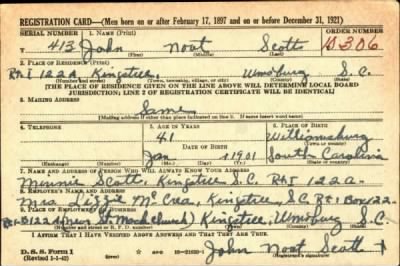 REGISTRATION CARD—(Men born on or after February 17, 1897 and on or before December 31, 1921)
SERIAL NUMBER 1. NAME (Print) ORDER NUMBER
413 John Noot Scott 10306
(First) (Middle) (Last)
2. PLACE OF RESIDENCE (Print)
Rt 1 122A, Kingstree, Wmsburg S.C.
(Number and street) (Town, township, village, or city) (County) (State)
[THE PLACE OF RESIDENCE GIVEN ON THE LINE ABOVE WILL DETERMINE LOCAL BOARD
JURISDICTION; LINE 2 OF REGISTRATION CERTIFICATE WILL BE IDENTICAL]
3. MAILING ADDRESS
Same
[Mailing address if other than place indicated on line 2. If same insert word same]
4. TELEPHONE 5. AGE IN YEARS 6. PLACE OF BIRTH
41 Williamsburg
DATE OF BIRTH (Town or county)
Jan 1901 South Carolina
(Exchange) (Number) (Mo.) (Day) (Yr.) (State or country)
7. NAME AND ADDRESS OF PERSON WHO WILL ALWAYS KNOW YOUR ADDRESS
Minnie Scott, Kingstree S.C. Rt 1 122a.
8. EMPLOYER'S NAME AND ADDRESS
Mrs Lizzie McCrea, Kingstree, S.C. Rt 1 Box 122
9. PLACE OF EMPLOYMENT OR BUSINESS
Rt 1 B 122A (near St Mark Church) Kingstree, Wmsburg S.C.
(Number and street or R. F. D. number) (Town) (County) (State)
I AFFIRM THAT I HAVE VERIFIED ABOVE ANSWERS AND THAT THEY ARE TRUE.
D. S. S. Form 1
(Revised 1-1-42) (over) 16—21630-1 John Noot Scott